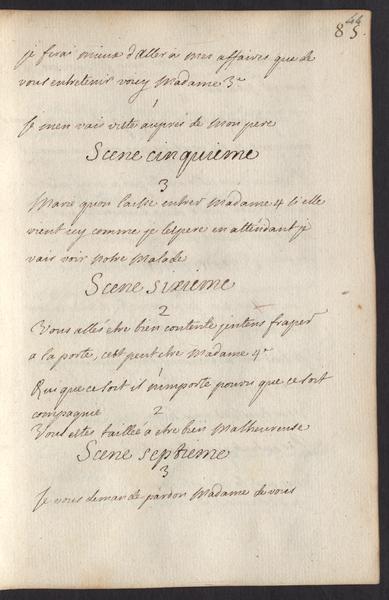 44
85.
je ferai mieux d'aller à mes affaires que de
vous entretenir voicy Madame 3.e
1
Je m'en vais viste aupres de Mon pere
Scene cinquieme
3
Marie qu'on laisse entrer Madame 4 si elle
vient icy comme je l'espere en attendant je
vais voir notre Malade
Scene sixieme
2
Vous allés etre bien contente j'entens fraper
a la porte, c'est peut etre Madame 4.e
1
Qui que ce soit il n'importe pourvu que ce soit
compagnie
2
Vous estes taillée a etre bien Malheureuse
Scene septieme
3
Je vous demande pardon Madame de vous